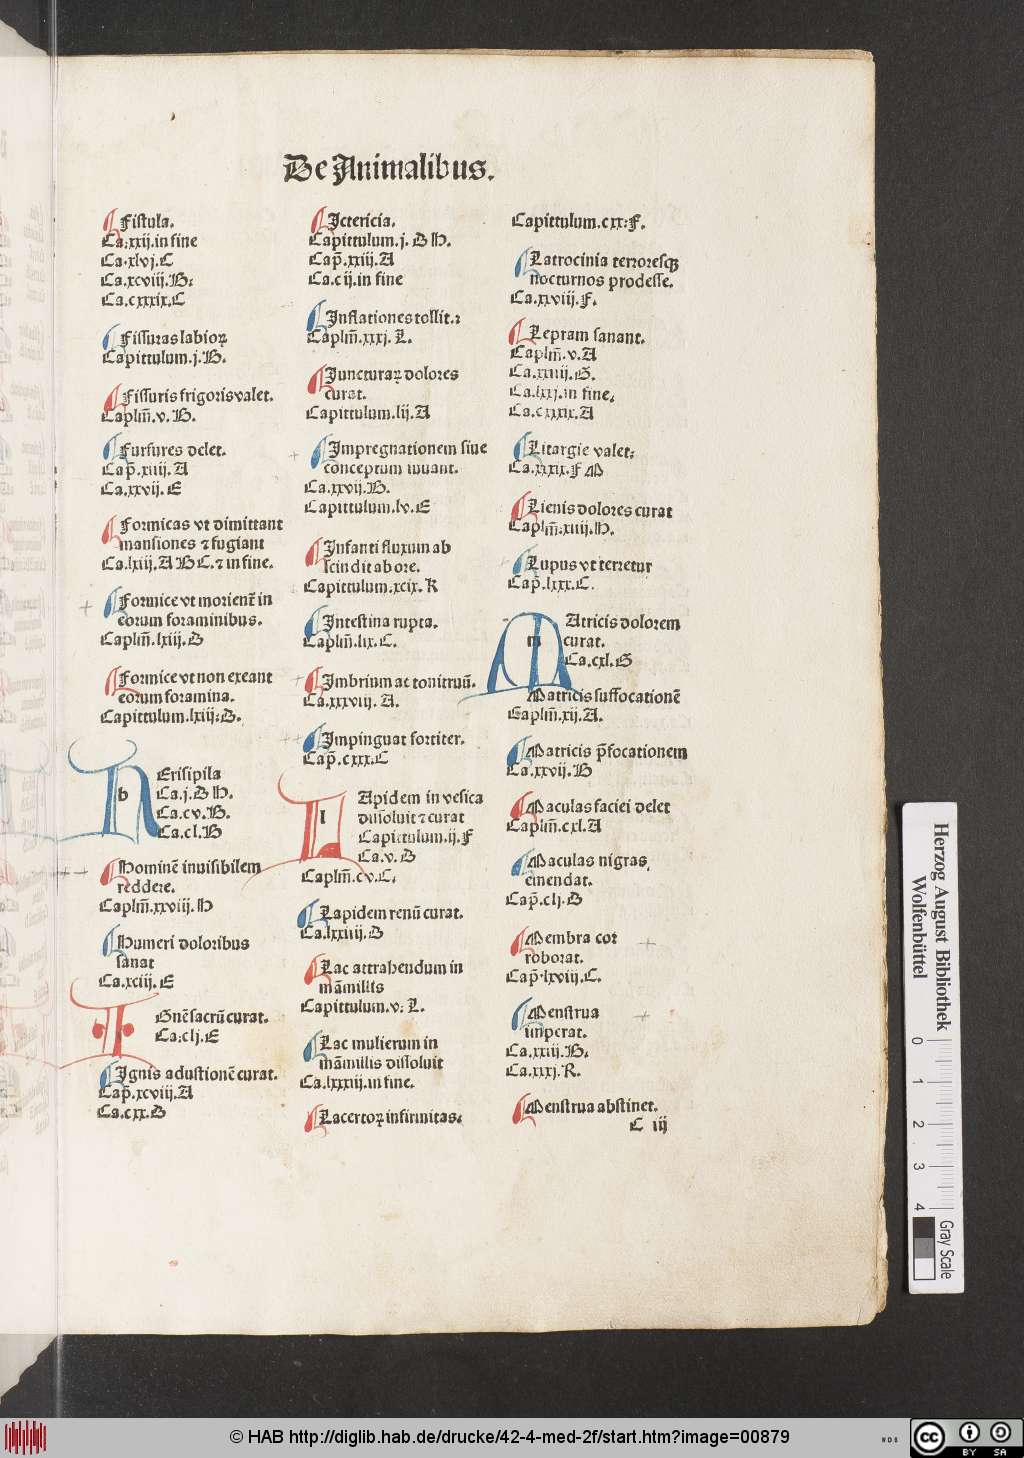 De Animalibus.
Fistula.
Ca.xxij.in fine
Ca.xlvj.C
Ca.xcviij.B.
Ca.cxxxix.C
Fissuras labioꝝ
Capittulum.j.B.
Fissuris frigoris valet.
Caplm̄.v.B.
Furfures delet.
Cap̄.xiiij.A
Ca.xxvij.E
Formicas vt dimittant
mansiones ⁊ fugiant
Ca.lxiij.A B C.⁊ in fine.
Formice vt morient̄ in
eorum foraminibus.
Caplm̄.lxiij.D
Formice vt non exeant
eorum foramina.
Capittulum.lxiij.D.
h
Erisipila
Ca.j.D H.
Ca.cv.B.
Ca.cl.B
Hominē inuisibilem
reddere.
Caplm̄.xxviij.H
Humeri doloribus
sanat
Ca.xciij.E
I
Gnē sacrū curat.
Ca.clj.E
Ignis adustionē curat.
Cap̄.xcviij.A
Ca.cxx.D
Ictericia.
Capittulum.j.D H.
Cap̄.xxiij.A
Ca.cij.in fine
Inflationes tollit.
Caplm̄.xxxj.L.
Juncturaꝝ dolores
curat.
Capittulum.lij.A
Impregnationem siue
conceptum iuuant.
Ca.xxvij.B.
Capittulum.lv.E
Infanti fluxum ab
scindit ab ore.
Capittulum.xcix.K
Intestina rupta.
Caplm̄.lix.C.
Imbrium ac tonitruū.
Ca.xxxviij.A.
Impinguat fortiter.
Cap̄.cxxx.C
l
Apidem in vesica
dissoluit ⁊ curat
Capittulum.ij.F
Ca.v.D
Caplm̄.cv.C.
Lapidem renū curat.
Ca.lxxiiij.D
Lac attrahendum in
māmillis
Capittulum.v.L.
Lac mulierum in
māmillis dissoluit
Ca.lxxxiij.in fine.
Lacertoꝝ infirmitas.
Capittulum.cxx.F.
Latrocinia terroresqꝫ
nocturnos prodesse.
Ca.xxviij.F.
Lepram sanant.
Caplm̄.v.A
Ca.xxiiij.G.
Ca.lxxj.in fine.
Ca.cxxxix.A
Litargie valet.
Ca.xxxix.F M
Lienis dolores curat
Caplm̄.xiiij.H.
Lupus vt terretur
Cap̄.lxxx.C.
m
Atricis dolorem
curat.
Ca.cxl.G
Matricis suffocationē
Caplm̄.xij.A.
Matricis p̄focationem
Ca.xxvij.B
Maculas faciei delet
Caplm̄.cxl.A
Maculas nigras
emendat.
Cap̄.clj.D
Membra cor
roborat.
Cap̄.lxviij.C.
Menstrua
imperat.
Ca.xxiij.B.
Ca.xxxj.K.
Menstrua abstinet.
C iij
Herzog August Bibliothek
Wolfenbüttel
0 1 2 3 4
Gray Scale
© HAB http://diglib.hab.de/drucke/42-4-med-2f/start.htm?image=00879
WDB
cc BY SA